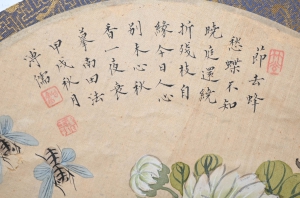 節去蜂
愁蝶不知
曉庭還繞
折殘枝自
緣今日人心
別未必秋
香一夜衰
摹南田法
甲戌秋月
溥儒